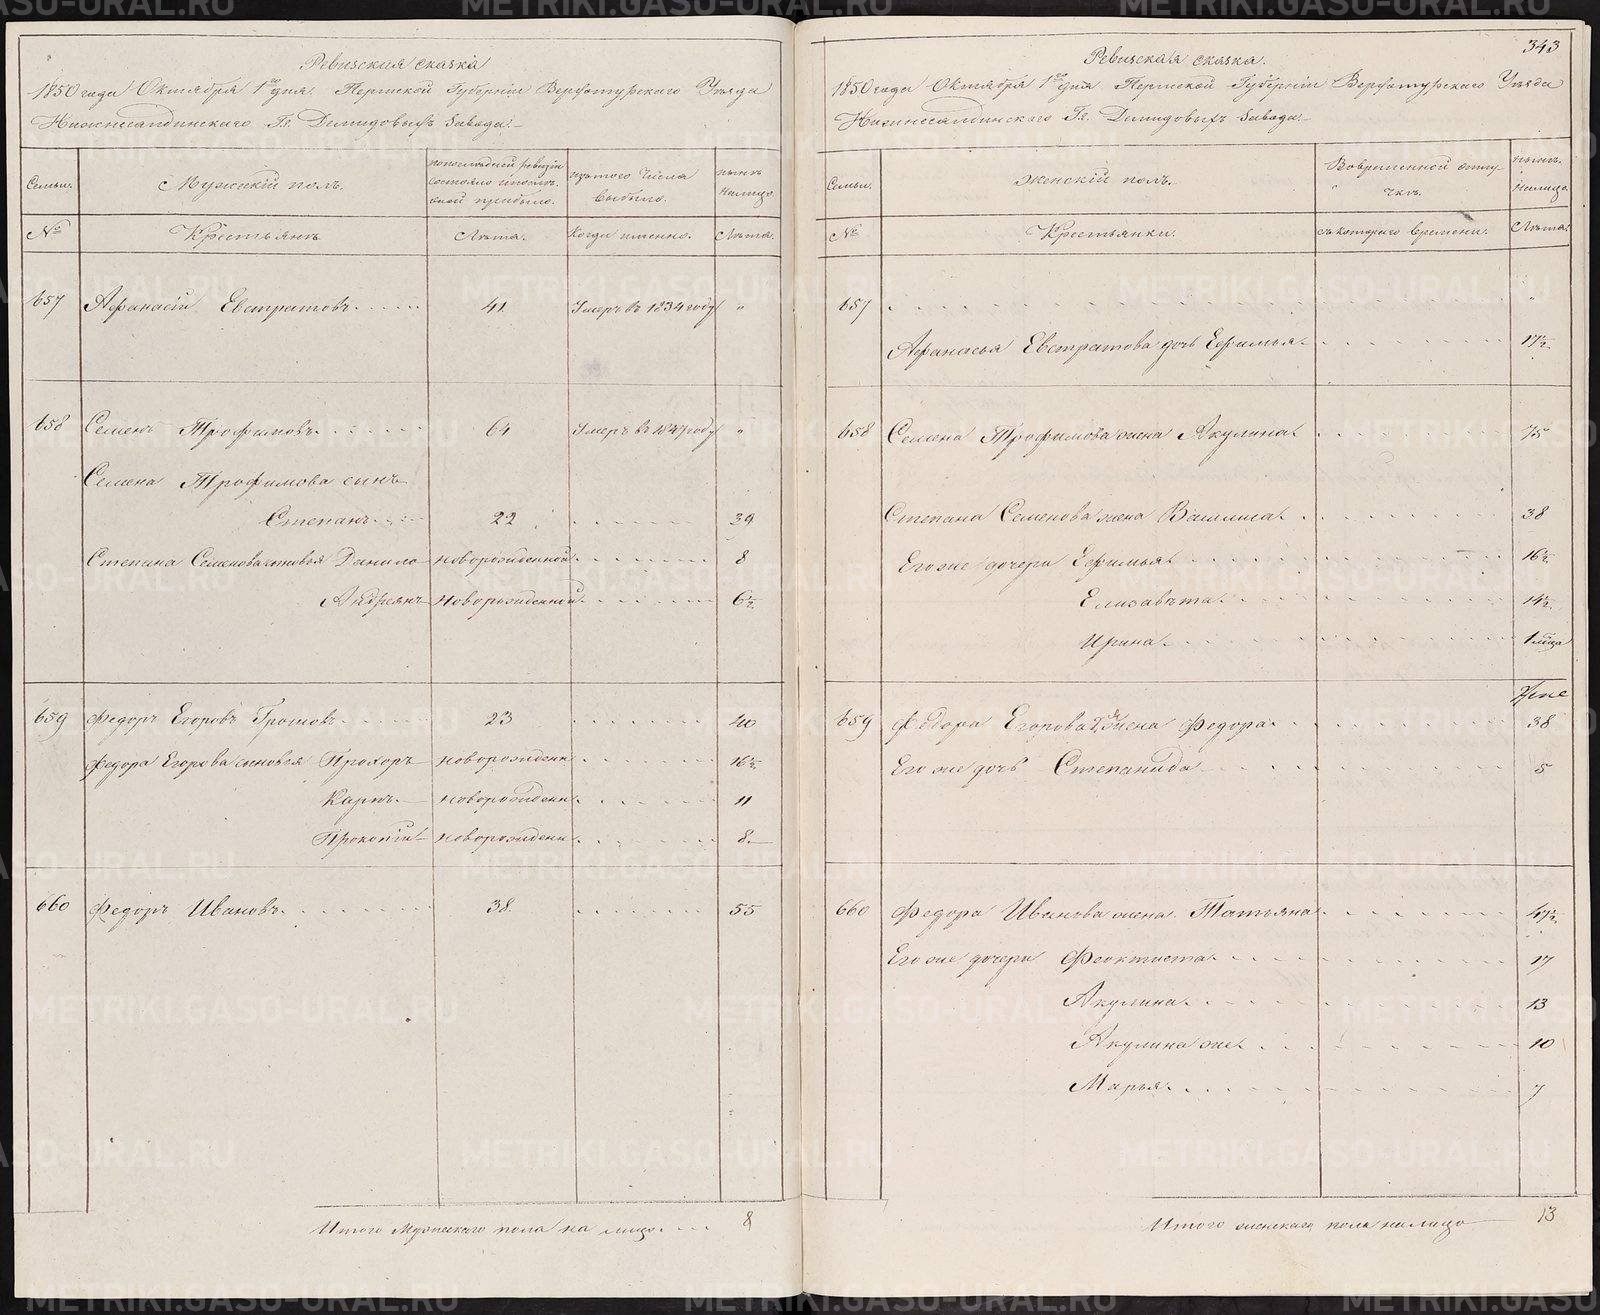 Ревизская сказка
1850 года Октября 1го дня. Пермской Губернiи Верхотурскаго Уѣзда
Нижнесалдинскаго Гг. Демидовыхъ Завода.
Семьи.
Мужескiй полъ.
по последней ревизiи состояло и после оной прибыло.
изъ того числа выбыло.
нынѣ на лицо.
№
Крестьянъ
Лѣта.
Когда именно.
Лѣта.
657 Афанасiй Евстратовъ 41 Умеръ въ 1834 году "
658 Семенъ Трофимовъ 64 Умеръ въ 1847 году "
Семена Трофимова сынъ
Степанъ 22 39
Степана Семенова сыновья Данило новорожденной 8
Андреянъ новорожденной 6½
659 Федоръ Егоровъ Грошовъ 23 40
Федора Егорова сыновья Прохоръ новорожденн 16½
Карпъ новорожденн 11
Прокопiй новорожденн 8
660 Федоръ Ивановъ 38 55
Итого Мужескаго пола на лицо 8
343
Ревизская сказка.
1850 года Октября 1го дня Пермской Губернiи Верхотурскаго Уѣзда
Нижнесалдинскаго Гг. Демидовыхъ Завода.
Семьи.
Женскiй полъ.
Во временной отлучкѣ.
нынѣ на лицо.
№
Крестьянки.
съ котораго времени.
Лѣта.
657 "
Афанасья Евстратова дочь Ефимья 17½
658 Семена Трофимова жена Акулина 75
Степана Семенова жена Василиса 38
Его же дочери Ефимья 16½
Елизавѣта 14½
Ирина 1 мѣсяца
659 Федора Егорова жена Федора 38
Его же дочь Степанида 5
660 Федора Иванова жена Татьяна 47½
Его же дочери Феоктиста 17
Акулина 13
Акулина же 10
Марья 7
Итого женскаго пола на лицо 13
METRIKI.GASO-URAL.RU